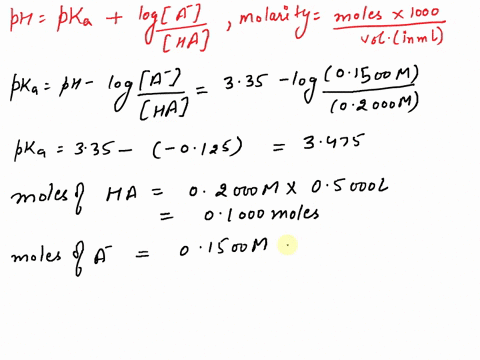 pH = pKa + log [A⁻]/[HA] , molarity = moles x 1000 / vol. (in ml)
pKa = pH - log [A⁻]/[HA] = 3.35 - log (0.1500 M)/(0.2000M)
pKa = 3.35 - (-0.125) = 3.475
moles of HA = 0.2000M x 0.5000L
= 0.1000 moles
moles of A⁻ = 0.1500M